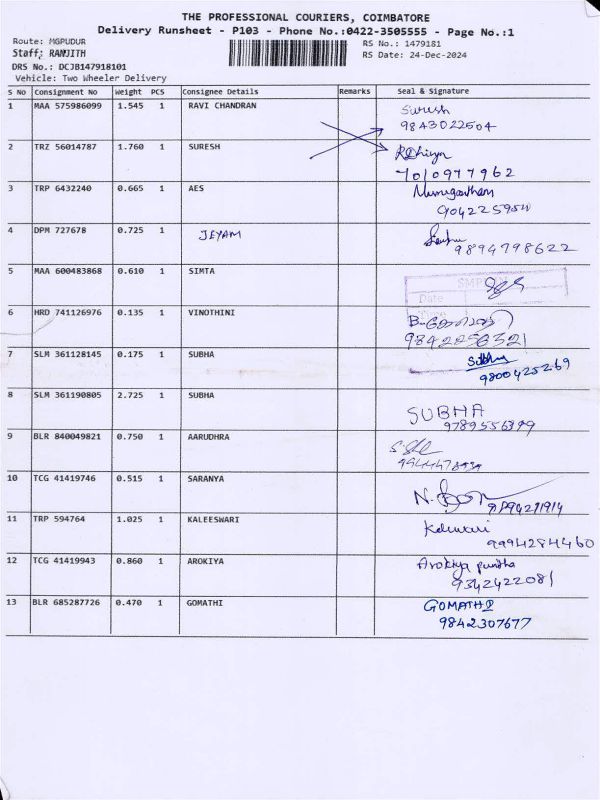 THE PROFESSIONAL COURIERS, COIMBATORE
Delivery Runsheet - P103 - Phone No.:0422-3505555 - Page No.:1
Route: MGPUDUR
Staff: RANJITH
DRS No.: DCJB147918101
Vehicle: Two Wheeler Delivery
RS No.: 1479181
RS Date: 24-Dec-2024
S No Consignment No Weight PCS Consignee Details Remarks Seal & Signature
1 MAA 575986099 1.545 1 RAVI CHANDRAN Suresh
9843022504
2 TRZ 56014787 1.760 1 SURESH
7010977962
3 TRP 6432240 0.665 1 AES
4 DPM 727678 0.725 1 JEYAM
9894798622
5 MAA 600483868 0.610 1 SIMTA
Date
Time
6 HRD 741126976 0.135 1 VINOTHINI
7 SLM 361128145 0.175 1 SUBHA Subha
9800425269
8 SLM 361190805 2.725 1 SUBHA SUBHA
9 BLR 840049821 0.750 1 AARUDHRA
10 TCG 41419746 0.515 1 SARANYA
11 TRP 594764 1.025 1 KALEESWARI
9994284460
12 TCG 41419943 0.860 1 AROKIYA Arokiya
9342422081
13 BLR 685287726 0.470 1 GOMATHI GOMATHI
9842307677